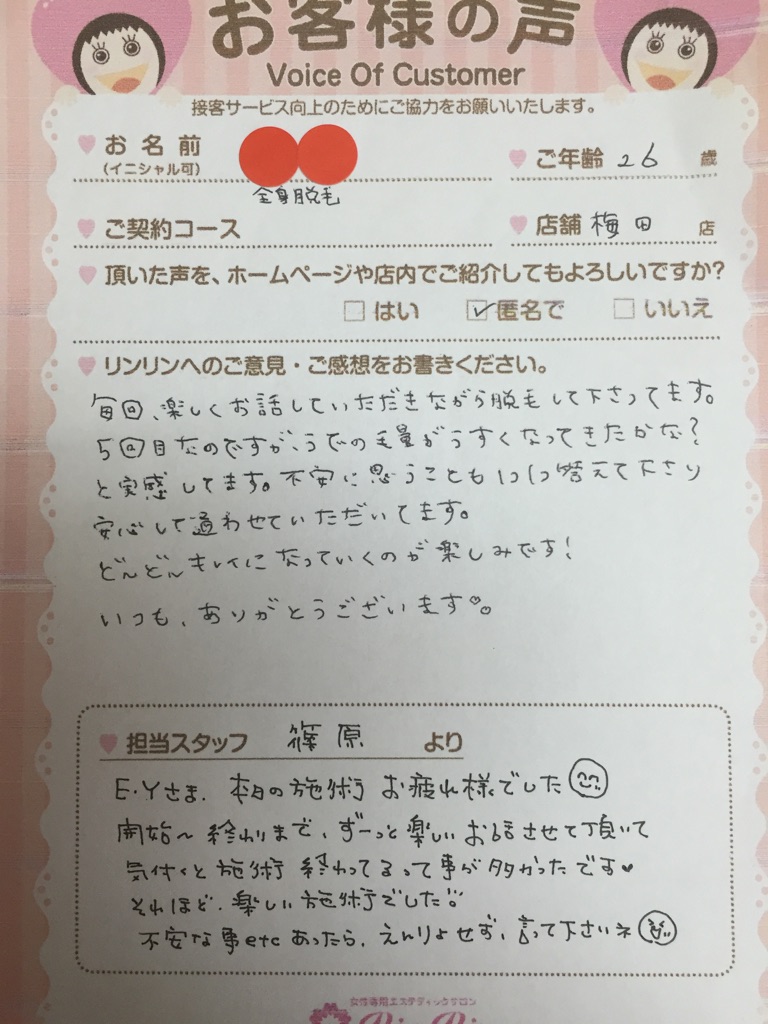 お客様の声
Voice Of Customer
接客サービス向上のためにご協力をお願いいたします。
お名前
(イニシャル可)
ご年齢 26 歳
全身脱毛
ご契約コース
店舗 梅田 店
頂いた声を、ホームページや店内でご紹介してもよろしいですか?
はい 匿名で いいえ
リンリンへのご意見・ご感想をお書きください。
毎回、楽しくお話していただきながら脱毛して下さってます。
5回目なのですが、うでの毛量がうすくなってきたかな?
と実感してます。不安に思うこともいつも答えて下さり
安心して通わせていただいてます。
どんどんキレイになっていくのが楽しみです!
いつも、ありがとうございます
担当スタッフ 篠原 より
E・Yさま. 本日の施術 お疲れ様でした
開始〜終わりまで、ずーっと楽しいお話させて頂いて
気付くと施術 終わってるって事が多かったです♥
それほど、楽しい施術でした
不安な事etcあったら、えんりょせず、言って下さいネ
女性専用エステティックサロン
RinRin